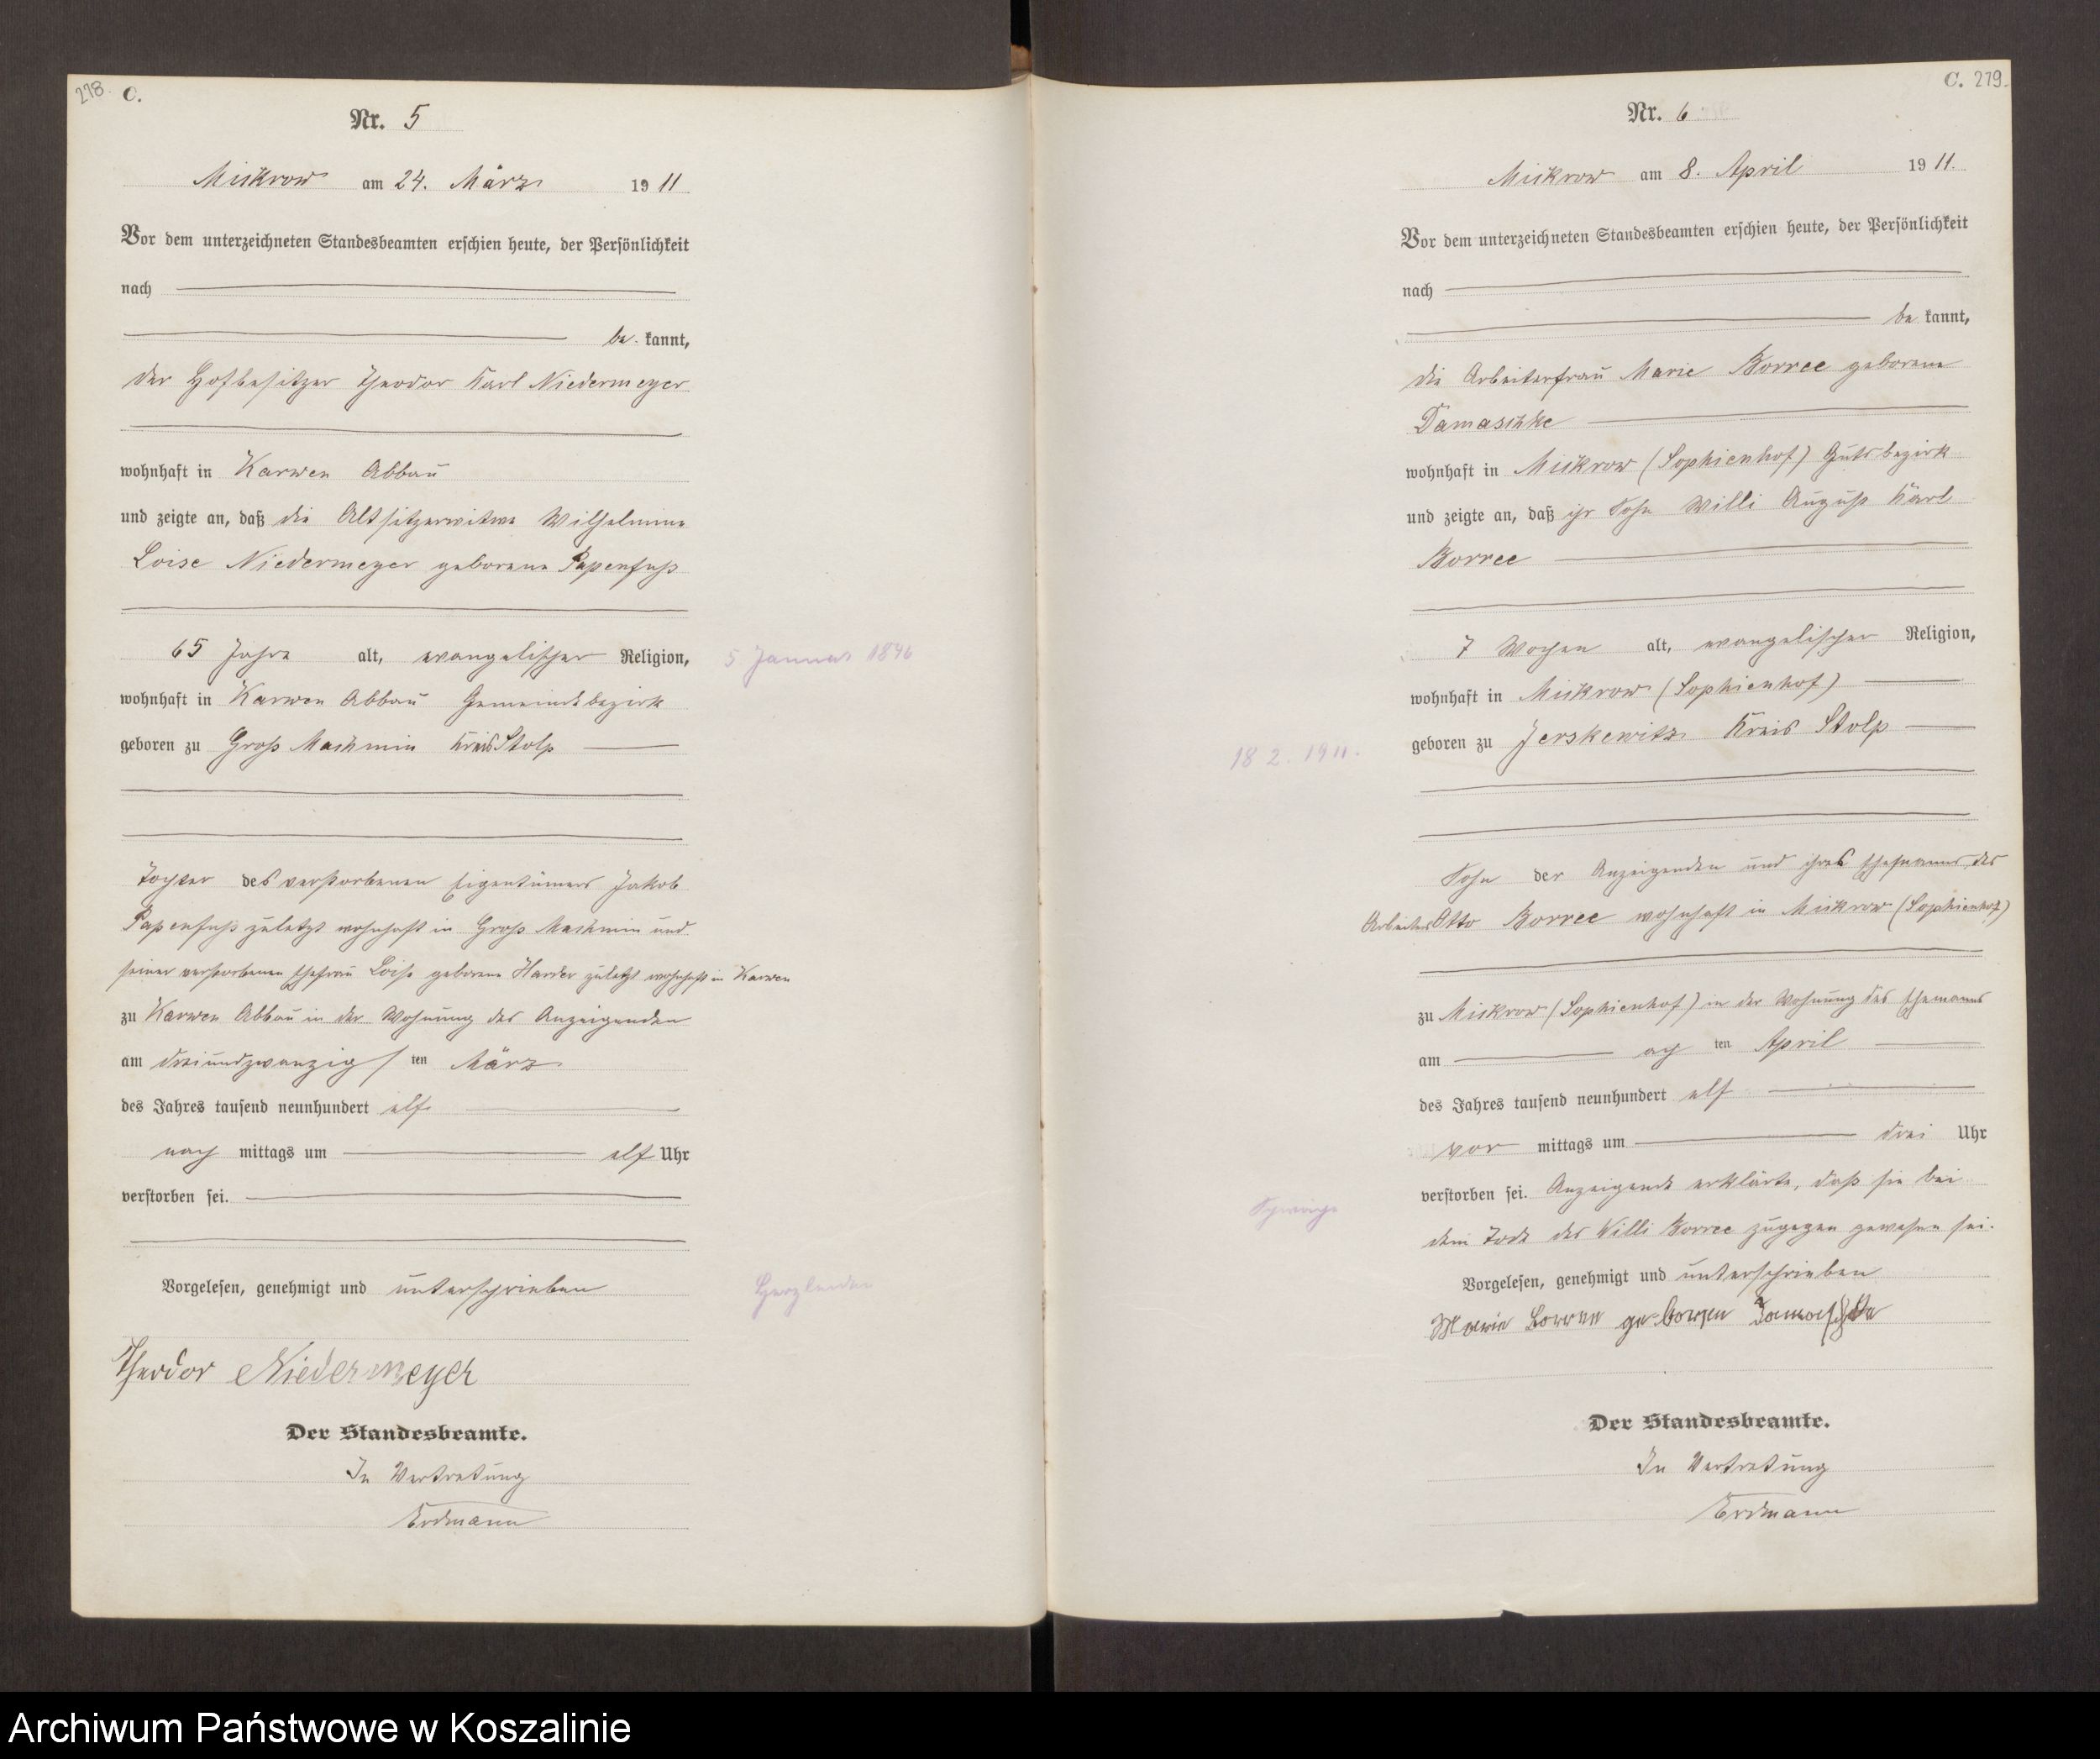 278.
C.
Nr. 5
Mickrow am 24. März 1911
Vor dem unterzeichneten Standesbeamten erschien heute, der Persönlichkeit
nach
be kannt,
der Hofbesitzer Theodor Karl Niedermeyer
wohnhaft in Karwen Abbau
und zeigte an, daß die Altsitzerwitwe Wilhelmine
Loise Niedermeyer geborene Papenfuß
65 Jahre alt, evangelischer Religion,
5 Januar 1846
wohnhaft in Karwen Abbau Gemeindebezirk
geboren zu Groß Machmin Kreis Stolp
Tochter des verstorbenen Eigentümers Jakob
Papenfuß zuletzt wohnhaft in Groß Machmin und
seiner verstorbenen Ehefrau Loise geborene Harder zuletzt wohnhaft in Karwen
zu Karwen Abbau in der Wohnung des Anzeigenden
am dreiundzwanzigsten März
des Jahres tausend neunhundert elf
nach mittags um elf Uhr
verstorben sei.
Vorgelesen, genehmigt und unterschrieben
Herzleiden
Theodor Niedermeyer
Der Standesbeamte.
In Vertretung
Erdmann
C. 279.
Nr. 6
Mickrow am 8. April 1911.
Vor dem unterzeichneten Standesbeamten erschien heute, der Persönlichkeit
nach
be kannt,
die Arbeiterfrau Marie Borree geborene
Damaschke
wohnhaft in Mickrow (Sophienhof) Gutsbezirk
und zeigte an, daß ihr Sohn Willi August Karl
Borree
7 Wochen alt, evangelischer Religion,
wohnhaft in Mickrow (Sophienhof)
geboren zu Jerskewitz Kreis Stolp
18 2. 1911.
Sohn der Anzeigenden und ihres Ehemanns des
Arbeiters Otto Borree wohnhaft in Mickrow (Sophienhof)
zu Mickrow (Sophienhof) in der Wohnung des Ehemanns
am achten April
des Jahres tausend neunhundert elf
vor mittags um drei Uhr
verstorben sei. Anzeigende erklärte, daß sie bei
dem Tode des Willi Borree zugegen gewesen sei.
Vorgelesen, genehmigt und unterschrieben
Marie Borree geborgen Damaschke
Der Standesbeamte.
In Vertretung
Erdmann
Archiwum Państwowe w Koszalinie